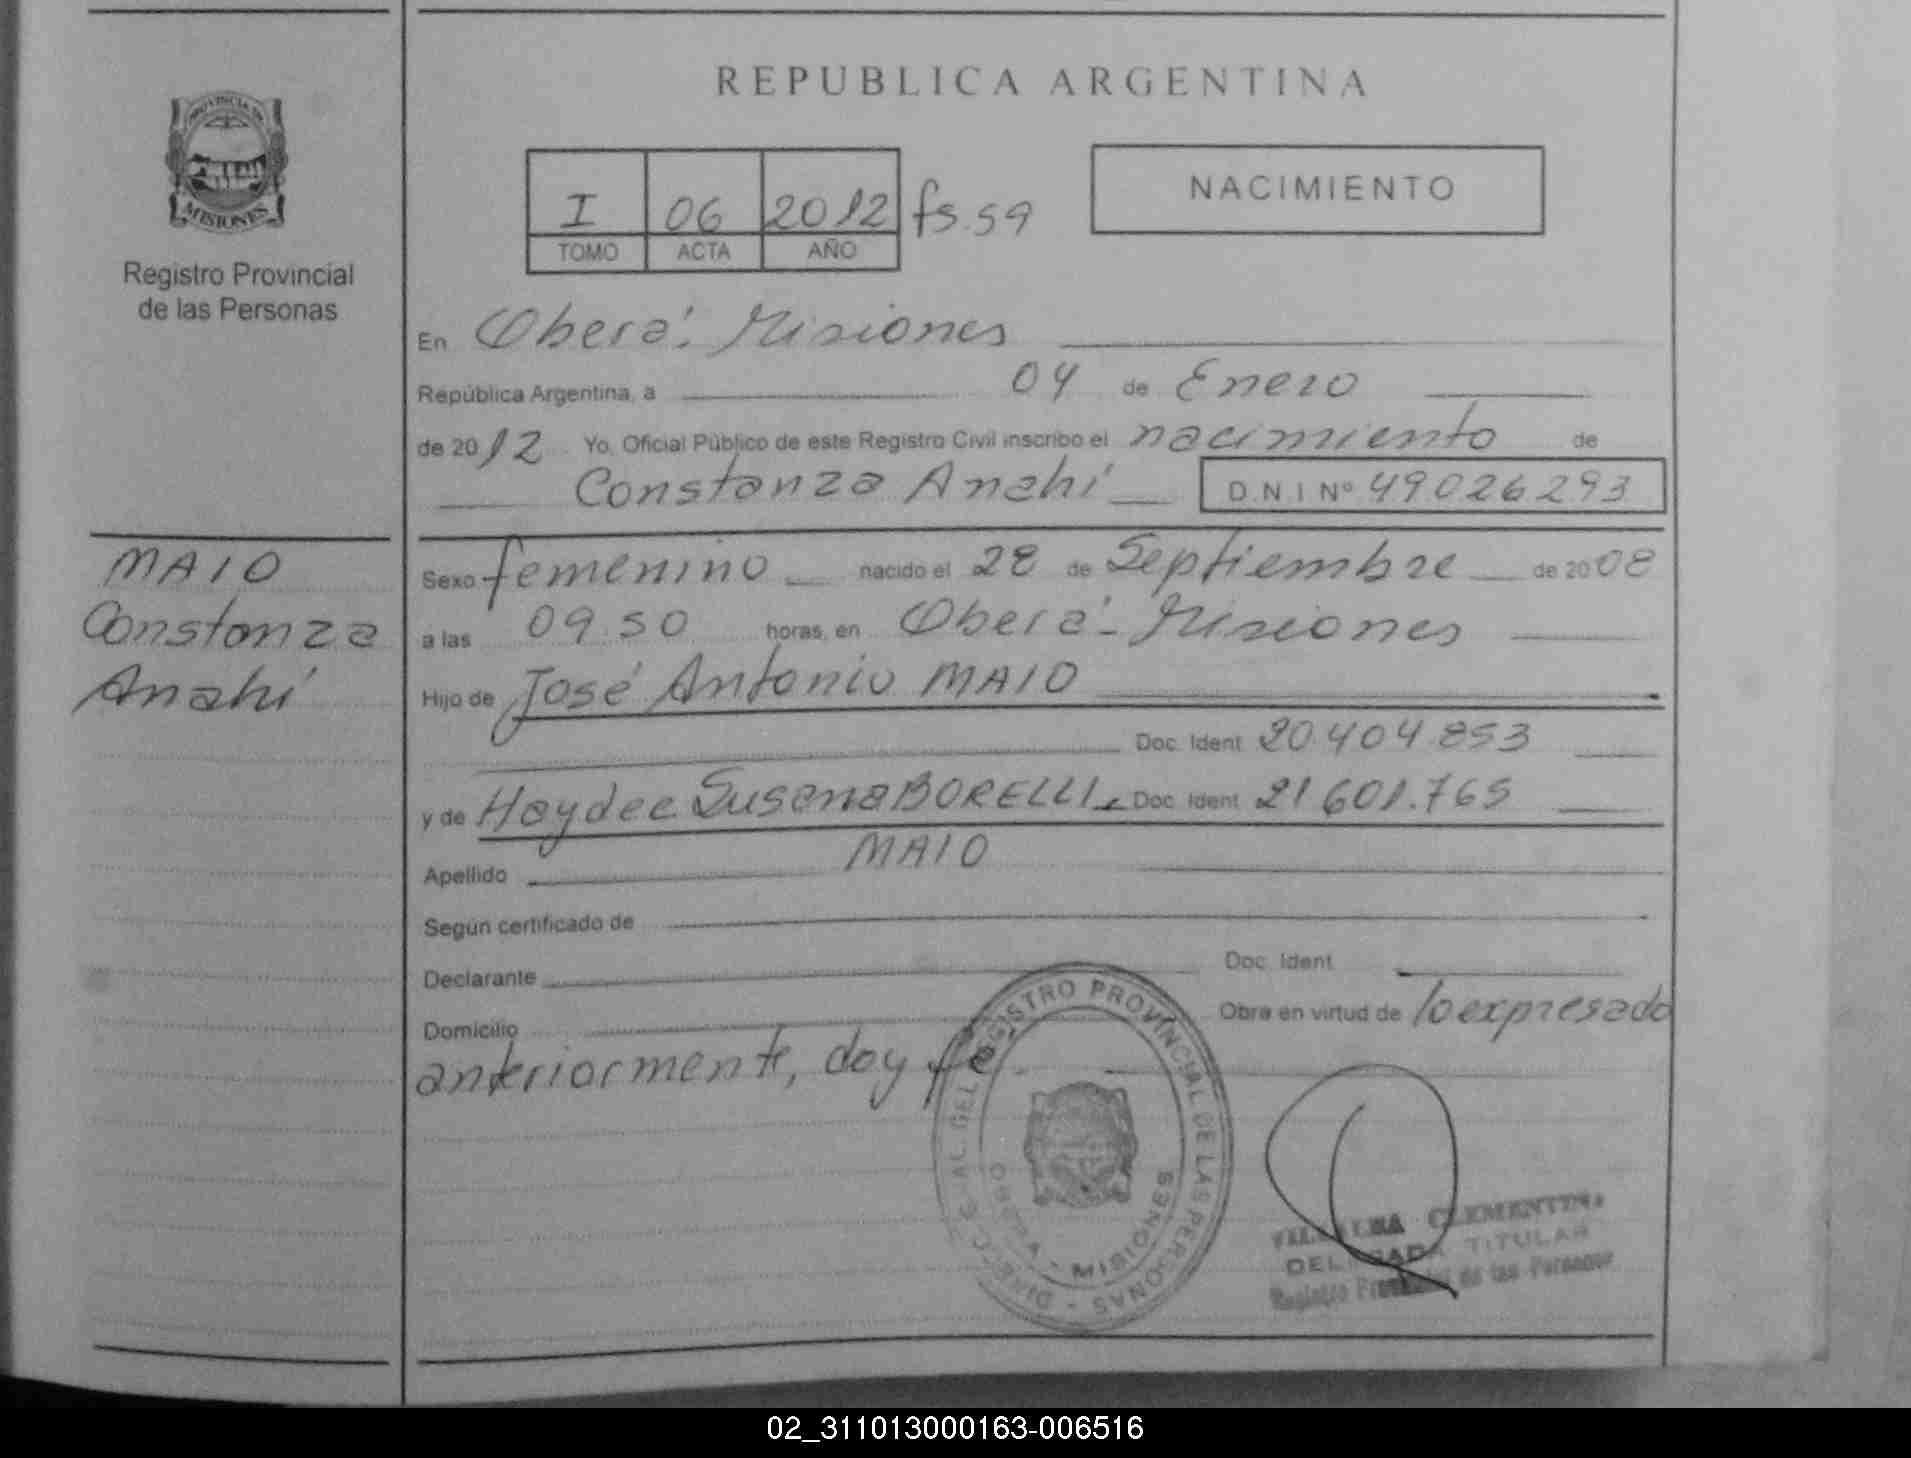 REPUBLICA ARGENTINA
PROVINCIA DE
MISIONES
Registro Provincial
de las Personas
I 06 2012 fs. 59
TOMO ACTA AÑO
NACIMIENTO
En Oberá. Misiones
República Argentina, a 04 de Enero
de 2012 Yo, Oficial Público de este Registro Civil inscribo el nacimiento de
Constanza Anahí D.N.I Nº 49026293
MAIO
Constanza
Anahí
Sexo femenino nacido el 28 de Septiembre de 2008
a las 09.50 horas, en Oberá - Misiones
Hijo de José Antonio MAIO
Doc. Ident 20.404.853
y de Haydee Susana BORELLI Doc. Ident 21.601.765
Apellido MAIO
Según certificado de
Declarante Doc. Ident
Domicilio Obra en virtud de lo expresado
anteriormente, doy fe.
REGISTRO PROVINCIAL DE LAS PERSONAS
OBERA - MISIONES
CLEMENTINA
DELEGADA TITULAR
Registro Provincial de las Personas
02_311013000163-006516